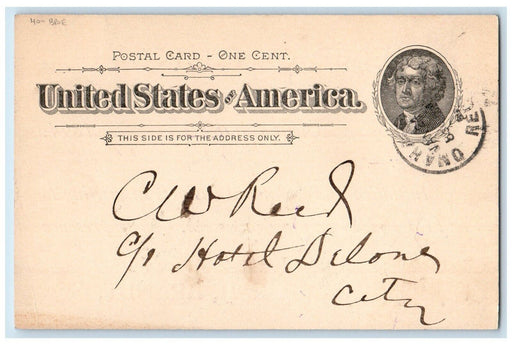 40- BROE
POSTAL CARD - ONE CENT.
United States of America.
THIS SIDE IS FOR THE ADDRESS ONLY.
OMAHA RE
C W Reed
c/o Hotel Delone
City